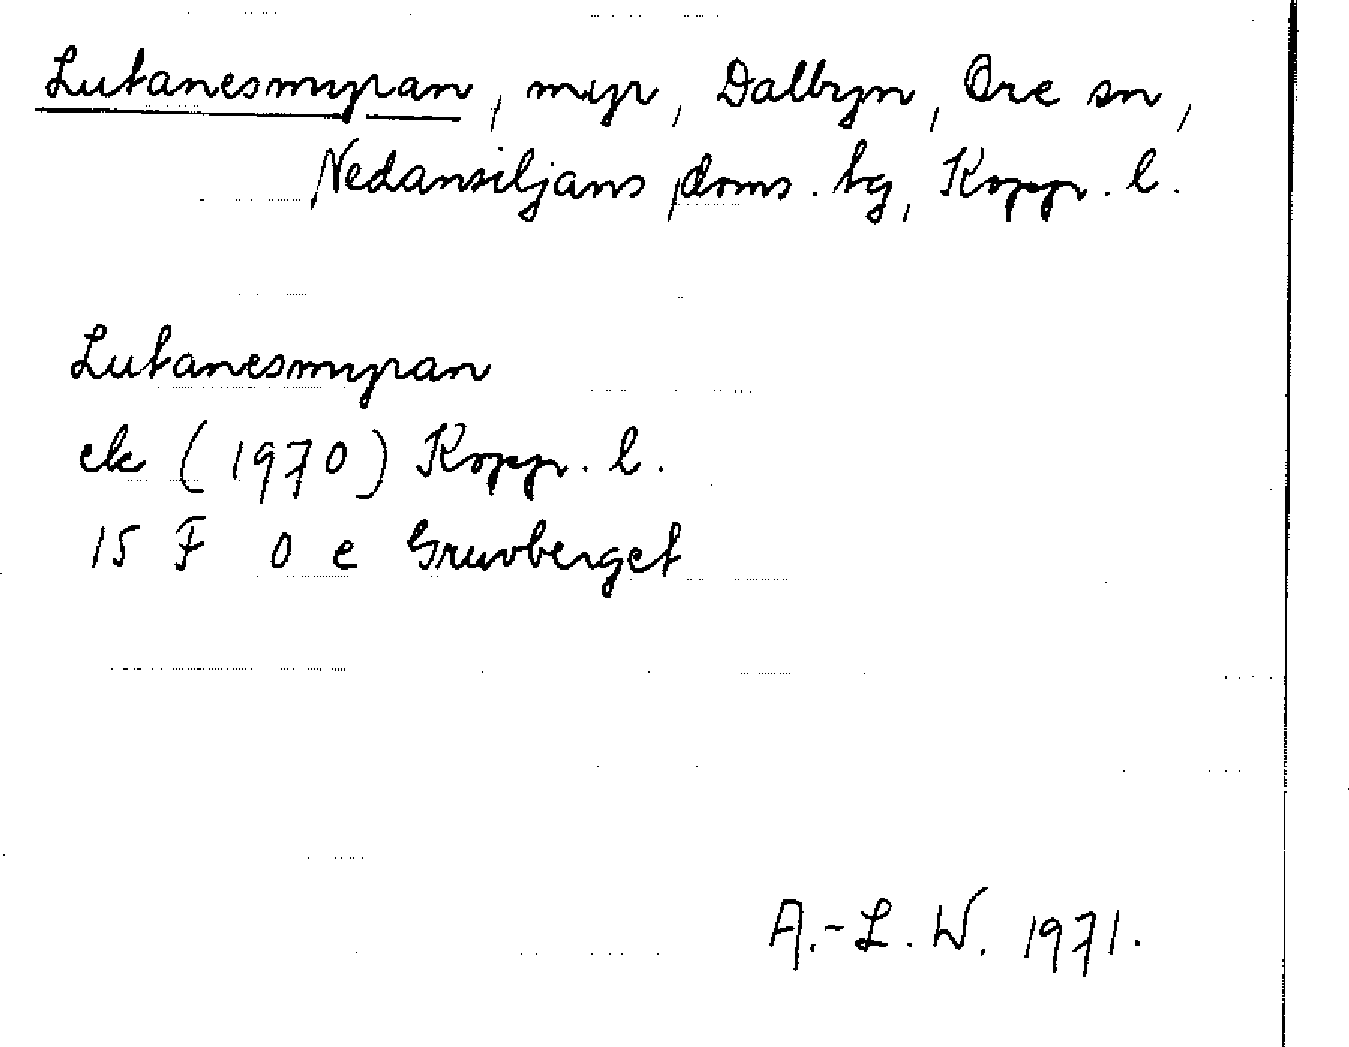 Lutanesmyran, myr, Dalbyn, Ore sn,
Nedansiljans doms. bg, Kopp. l.
Lutanesmyran
ek (1970) Kopp. l.
15 F 0 e Gruvberget
A.-L. W. 1971.